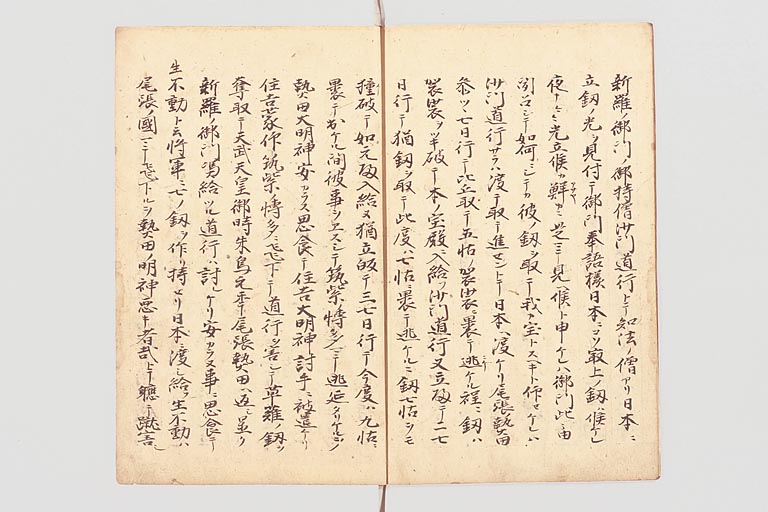 新羅ノ御門ノ御持僧沙門道行ト云知法ノ僧アリ日本ニ
立釼ノ光ヲ見付テ御門奉語様日本ニコソ取上ノ釼ハ候ケレ
夜ナ〻〻光立候カ鮮カニ是ニ見ヘ候ト申ケレハ御門此ノ由
聞召シテ如何ニシテカ彼ノ釼ヲ取テ我カ宝トスヘキト作セケレハ
沙門道行サラハ渡テ取テ進セントテ日本ヘ渡ケリ尾張熱田
参ツヽ七日行テ此ヲ取テ五帖ノ袈裟ニ褁テ逃ケル程ニ釼ハ
袈裟ヲツキ破テ本ノ宝殿ニ入給ヌ沙門道行又立皈テ二七
日行テ猶釼ヲ取テ此度ハ七帖ニ褁テ逃ケルニ釼七帖ヲモ
撞破テ如元皈入給ヌ猶立皈テ三七日行テ今度ハ九帖ニ
褁テ出ケル間被事ヲエスシテ筑紫博多ヘニテ逃延タリケルヲ
熱田大明神安カラス思食テ住吉大明神討手ニ被遣ケリ
住吉蒙仰筑紫博多ニ飛下テ道行ヲ害シテ草薙ノ釼ヲ
奪取テ天武天皇御時朱鳥元年尾張熱田ヘ返シ並ケリ
新羅ノ御門馮給ツル道行ハ討レケリ安カラヌ事ニ思食テ
生不動ト云将軍ニ七ノ釼ヲ作リ持セリ日本ヘ渡シ給ヲ生不動ハ
尾張ノ國ニテ飛下ルヲ熱田ノ明神悪キ者哉トテ軈テ蹴害